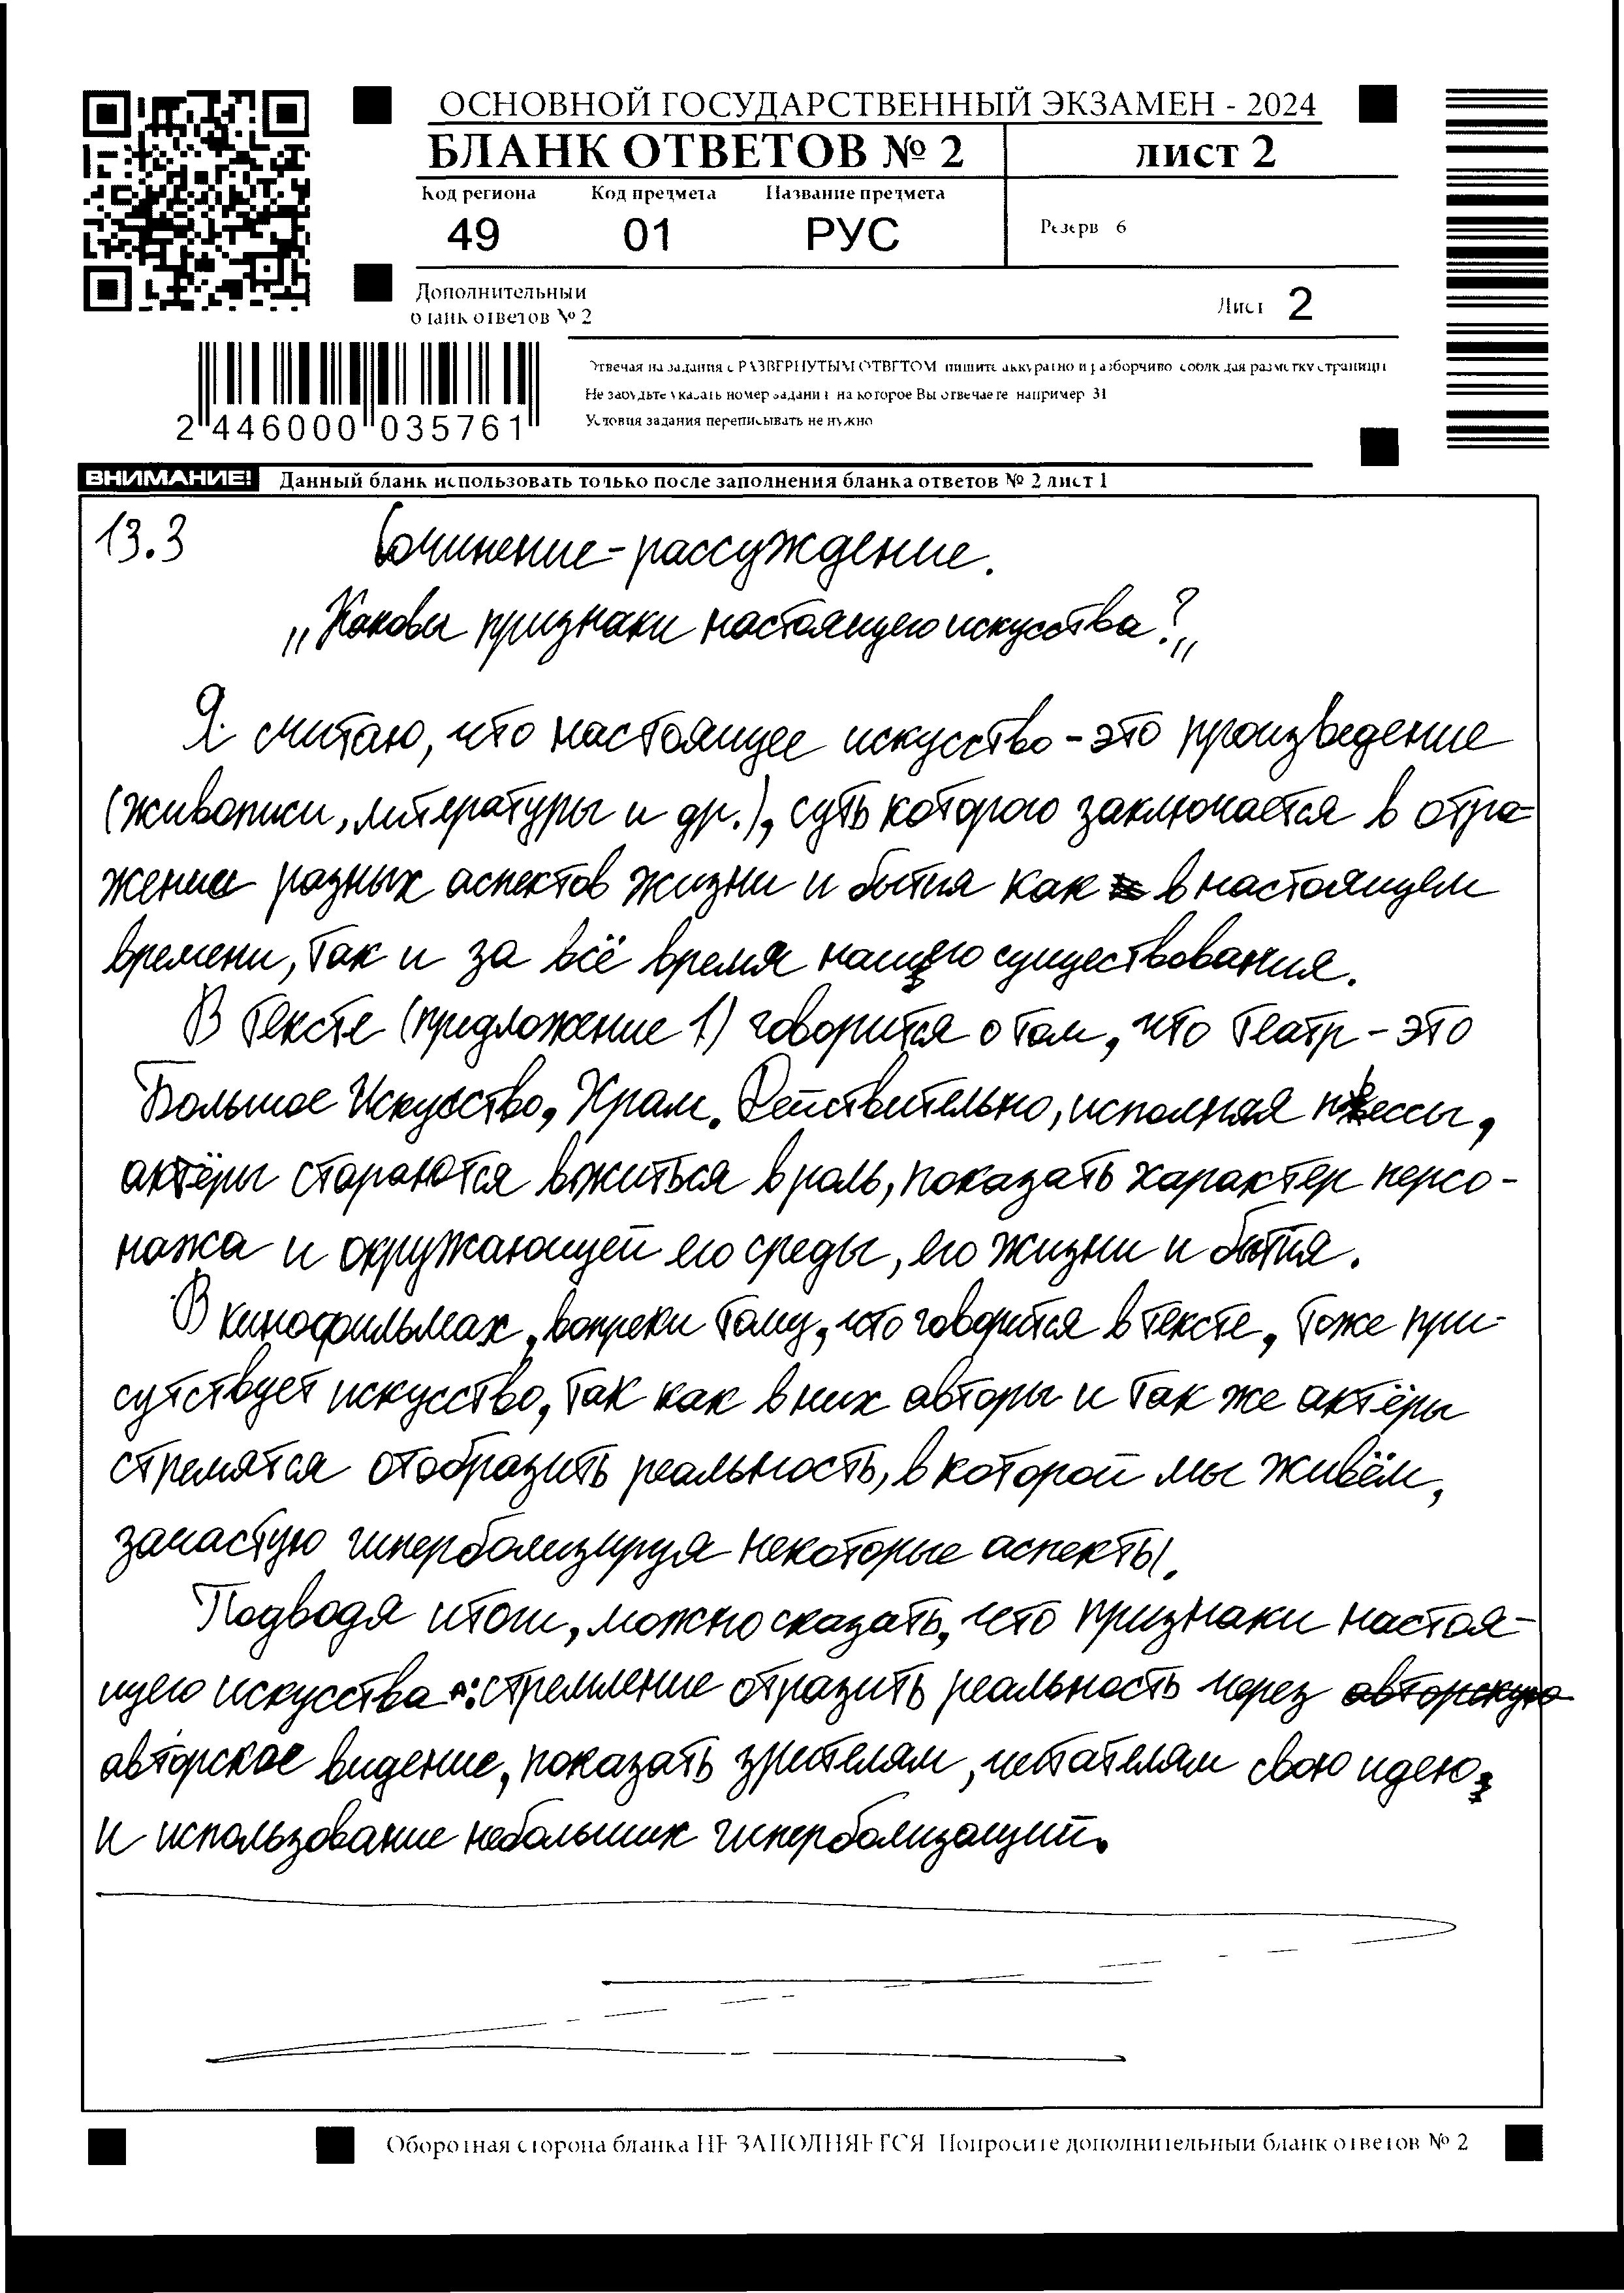 ОСНОВНОЙ ГОСУДАРСТВЕННЫЙ ЭКЗАМЕН - 2024
БЛАНК ОТВЕТОВ № 2
ЛИСТ 2
Код региона Код предмета Название предмета
49 01 РУС
Резерв 6
Дополнительный
бланк ответов № 2
Лист 2
2 446000 035761
Отвечая на задания с РАЗВЕРНУТЫМ ОТВЕТОМ пишите аккуратно и разборчиво соблюдая разметку страницы
Не забудьте указать номер задания на которое Вы отвечаете например 31
Условия задания переписывать не нужно
ВНИМАНИЕ! Данный бланк использовать только после заполнения бланка ответов № 2 лист 1
13.3 Сочинение-рассуждение.
„Каковы признаки настоящего искусства?„
Я считаю, что настоящее искусство - это произведение
(живописи, литературы и др.), суть которого заключается в отра-
жении разных аспектов жизни и бытия как в настоящем
времени, так и за всё время нашего существования.
В тексте (предложение 1) говорится о том, что театр - это
Большое Искусство, Храм. Действительно, исполняя пьессы,
актёры стараются вжиться в роль, показать характер персо-
нажа и окружающей его среды, его жизни и бытия.
В кинофильмах, вопреки тому, что говорится в тексте, тоже при-
сутствует искусство, так как в них авторы и так же актёры
стремятся отобразить реальность, в которой мы живём,
зачастую гиперболизируя некоторые аспекты.
Подводя итоги, можно сказать, что признаки настоя-
щего искусства: стремление отразить реальность через авторскую
авторское видение, показать зрителям, читателям свою идею,
и использование небольших гиперболизаций.
Оборотная сторона бланка НЕ ЗАПОЛНЯЕТСЯ Попросите дополнительный бланк ответов № 2